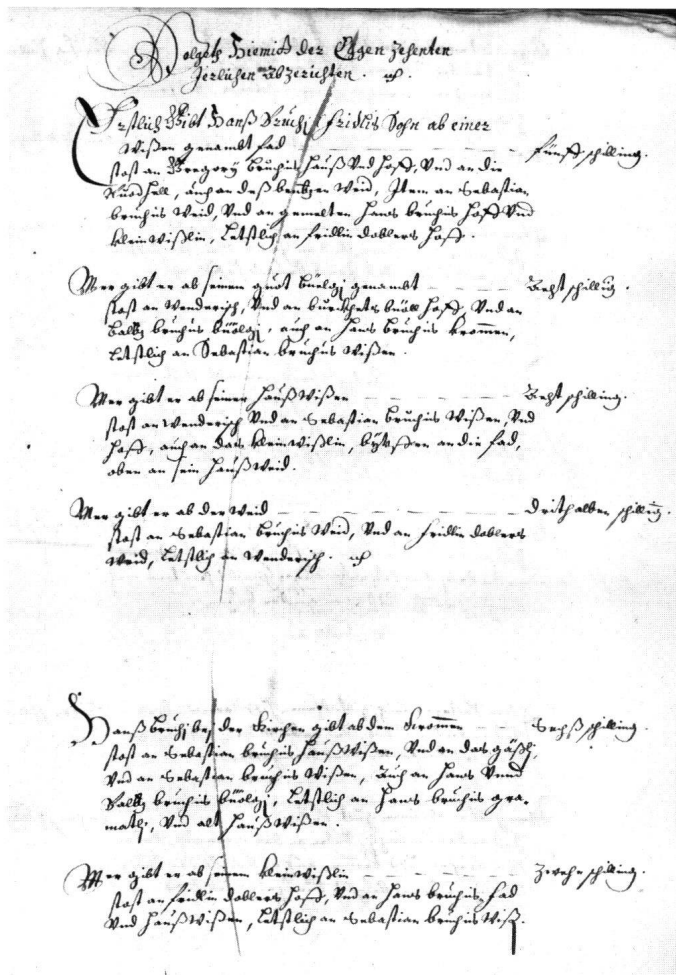 Volgeth Hiemitt der Eygen zehenten
Jerlichen abzerichten.
Erstlich Gibt Hanß Bruchj Fridlis Sohn ab einer
Wißen genambt fad fünff schilling.
stost an Gregory Bruchis Hauß Vnd Hoff, Vnd an die
auch an deß Weid, Item an Sebastian
bruchis Weid, Vnd an gemelten Hans bruchis Hoff Vnd
klein Wißlin, Letstlich an fridlin doblers Hoff.
Mer gibt er ab seinem guot büelgj genambt Acht schillig.
stost an Wenderisch, Vnd an büöll Hoff, Vnd an
Baltz bruchis büölgj, auch an Hans bruchis krommen,
Letstlich an Sebastian bruchis Wißen.
Mer gibt er ab seiner Haußwißen Acht schilling.
stost an Wenderisch Vnd an Sebastian bruchis Wißen, Vnd
Hoff, auch an das klein Wißlin, an die fad,
oben an sein Hauß Weid.
Mer gibt er ab der Weid drithalben schillig.
stost an Sebastian bruchis Weid, Vnd an fridlin doblers
Weid, Letstlich an Wenderisch.
Hanß bruchj bej der Kirchen gibt ab dem Krommen Sechß schilling.
stost an Sebastian bruchis Haußwißen, Vnd an das gäßlj,
Vnd an Sebastian bruchis Wißen, Auch an Hans Vnnd
Baltz bruchis büölgj, Letstlich an Hans bruchis gra-
matj, Vnd alt Haußwißen.
Mer gibt er ab seinem klein Wißlin Zwehn schilling.
stost an fridlin doblers Hoff, Vnd an Hans bruchis fad
Vnd Haußwißen, Letstlich an Sebastian bruchis Wiß.